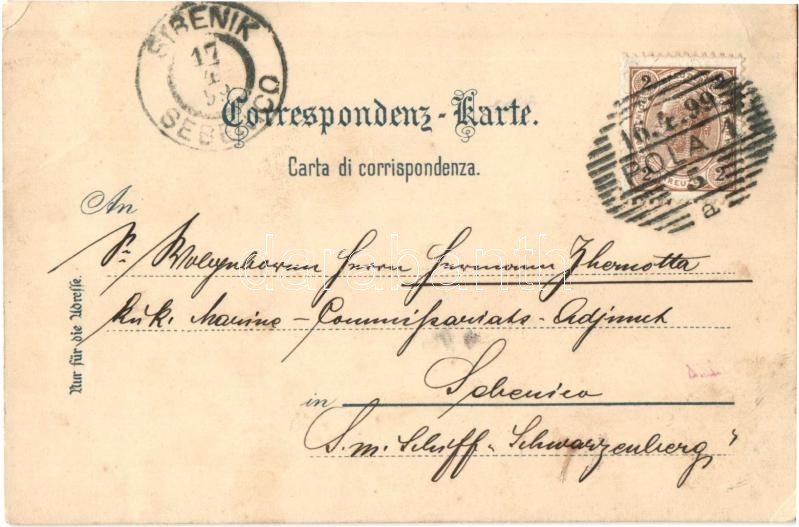 ŠIBENIK
17
4
SEBENICO
Correspondenz-Karte.
Carta di corrispondenza.
2
2 KREUZER 2
16.4.99
POLA 1
5
a
An
Sr Wolgenboren Herrn Hermann Zhernotta
K.u.k. Marine-Commissariats-Adjunct
in Sebenico
S.M. Schiff „Schwarzenberg"
Nur für die Adresse.
darabanth